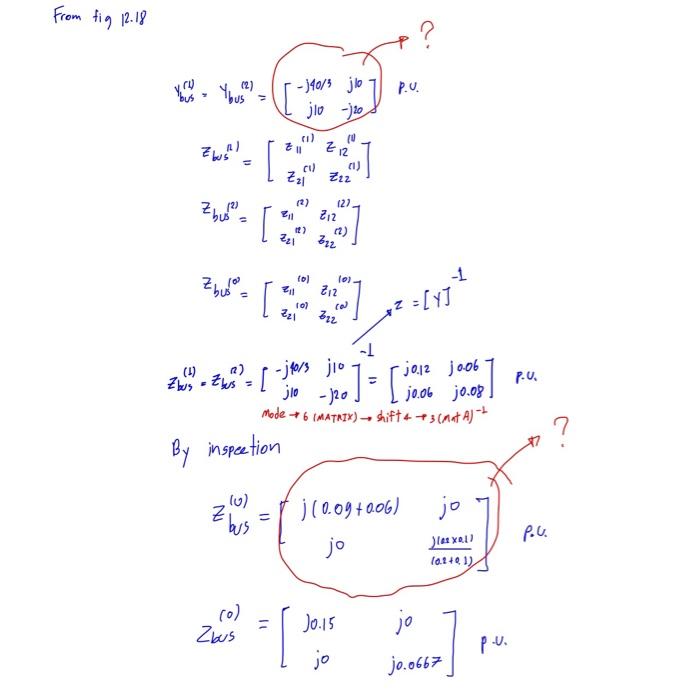 From fig 12.18
?
Ybus(1) = Ybus(2) = [ -j40/3 j10 ] p.u.
[ j10 -j20 ]
Zbus(1) = [ Z11(1) Z12(1) ]
[ Z21(1) Z22(1) ]
Zbus(2) = [ Z11(2) Z12(2) ]
[ Z21(2) Z22(2) ]
Zbus(0) = [ Z11(0) Z12(0) ]
[ Z21(0) Z22(0) ]
Z = [Y]-1
Zbus(1) = Zbus(2) = [ -j40/3 j10 ]-1 = [ j0.12 j0.06 ] p.u.
[ j10 -j20 ] [ j0.06 j0.08 ]
mode → 6 (MATRIX) → shift 4 → 3 (Mat A)-1
By inspection
?
Zbus(0) = [ j(0.09+0.06) j0 ] p.u.
[ j0 j(0.2x0.1)/(0.2+0.1) ]
Zbus(0) = [ j0.15 j0 ] p.u.
[ j0 j0.0667 ]